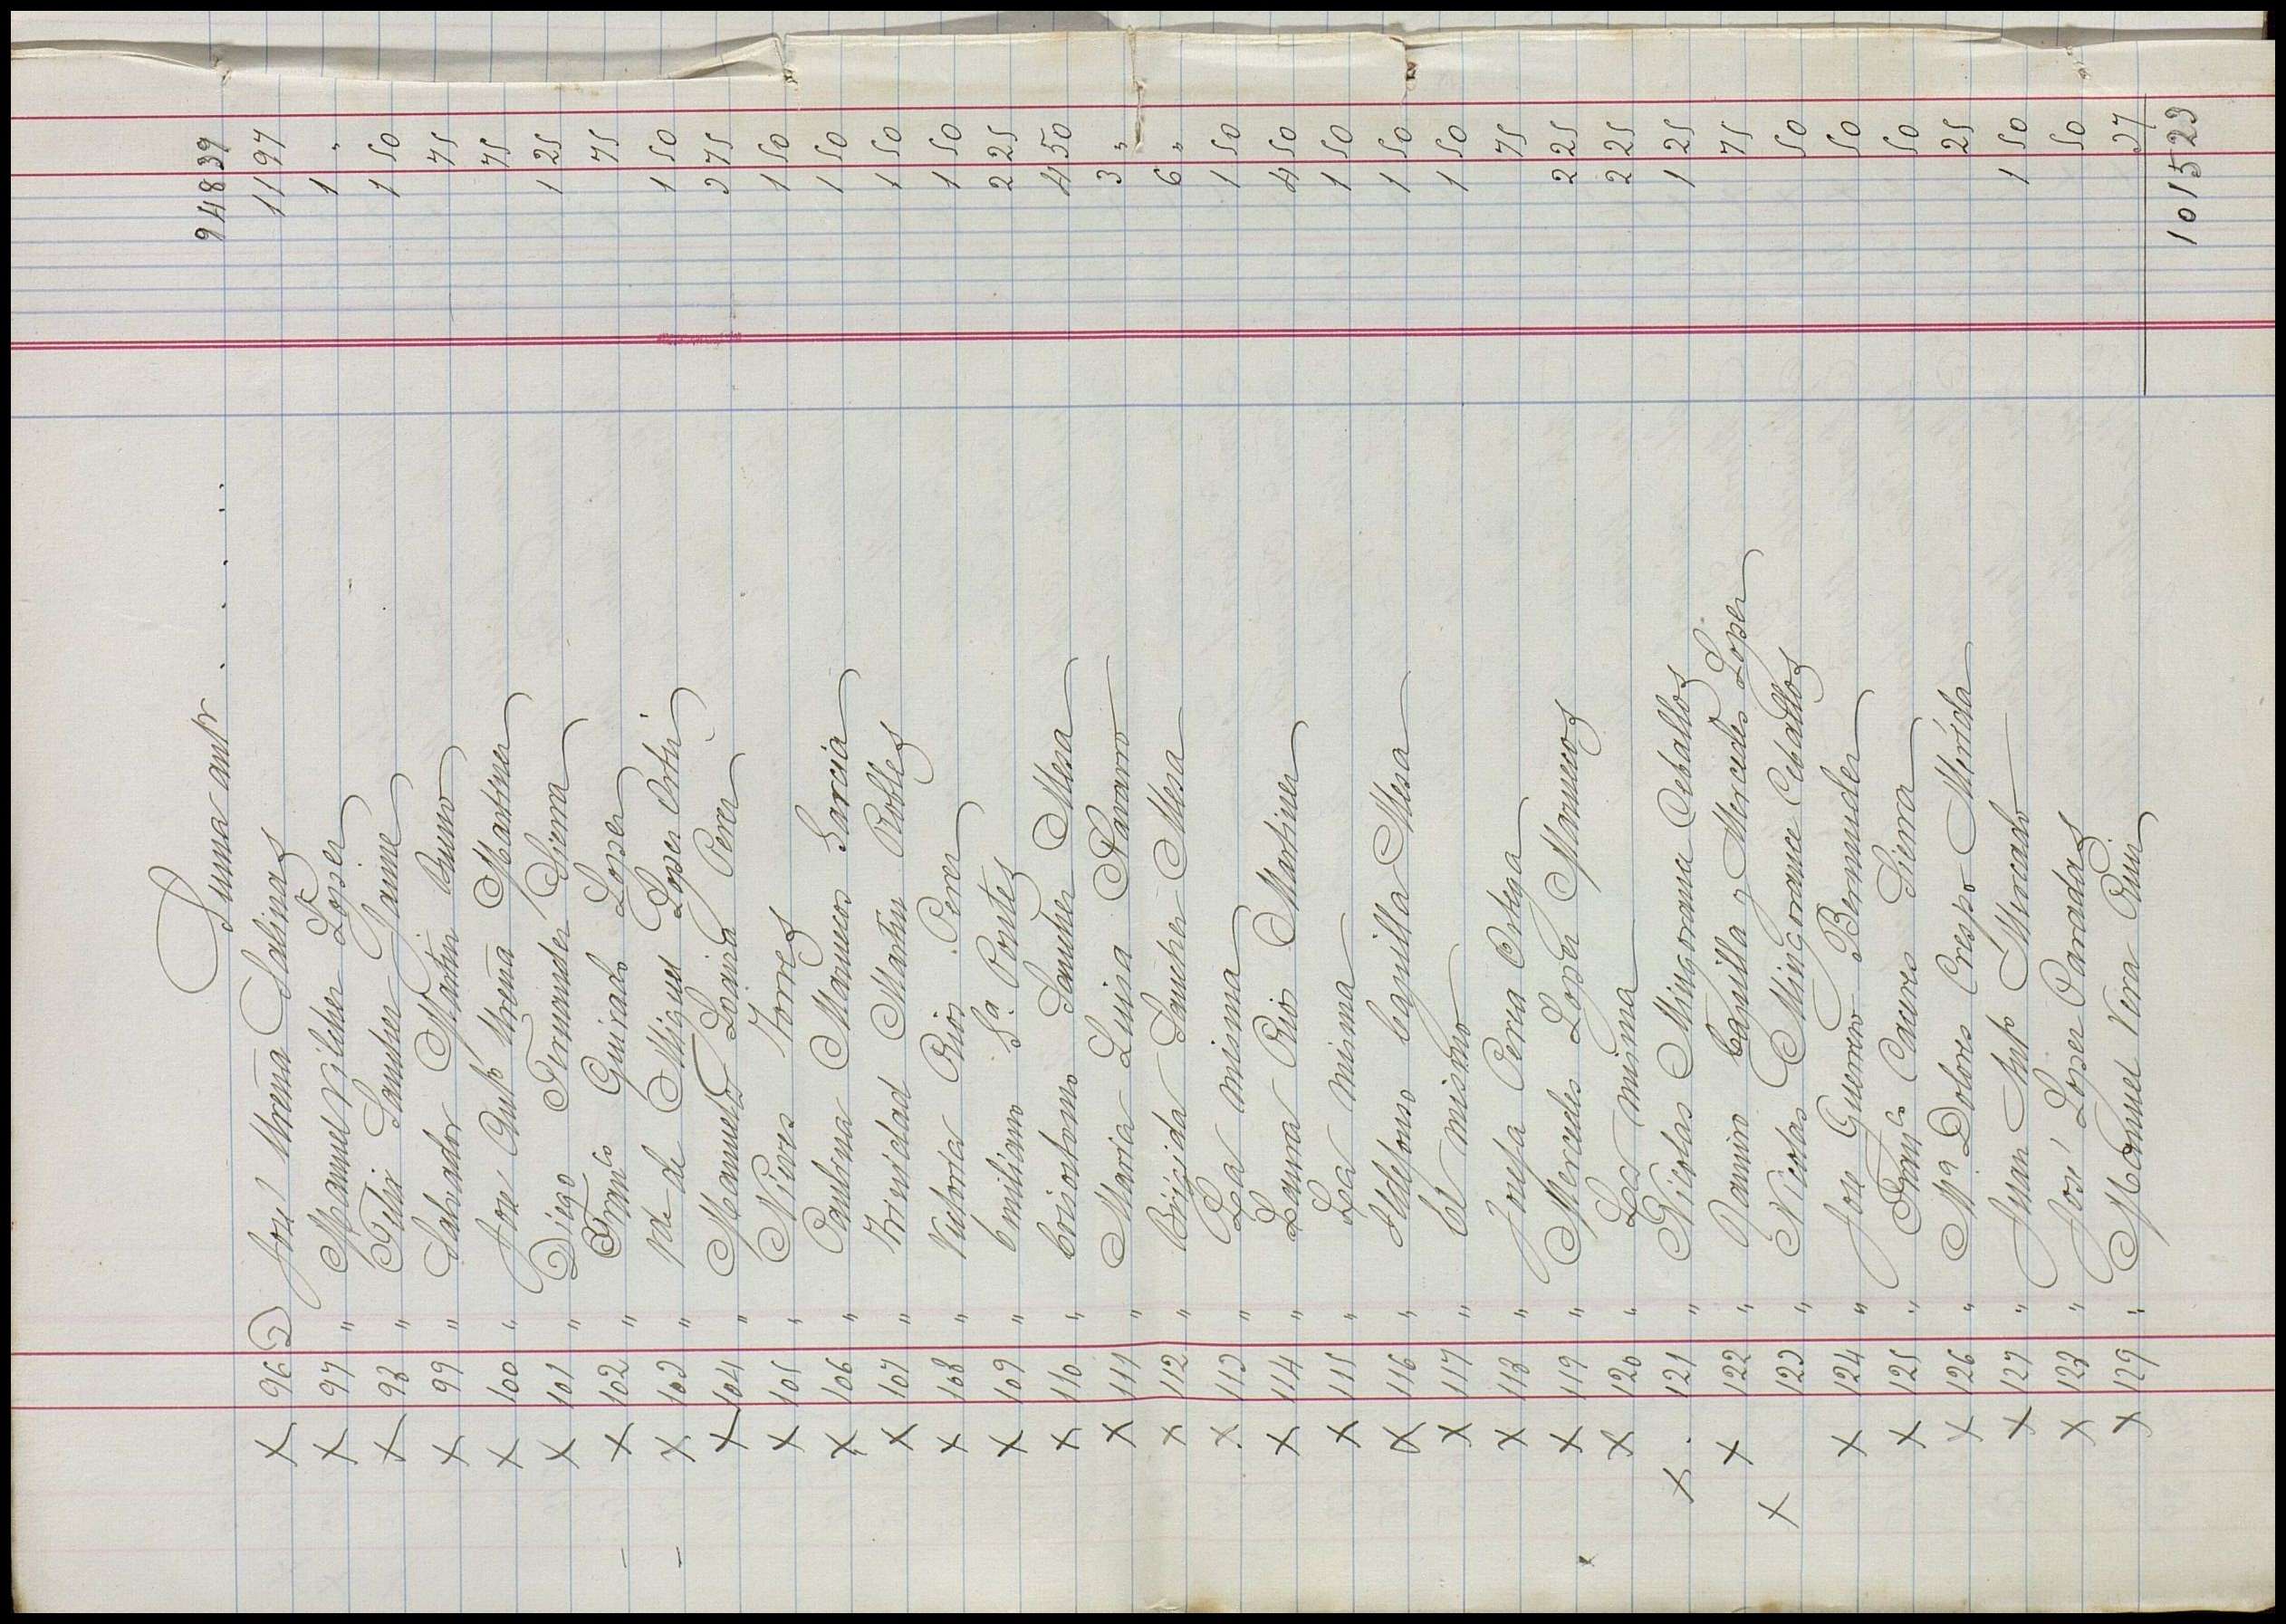 Suma antr . . . . . 948 39
X 96 D José Ureña Salinas 11 97
X 97 " Manuel Vilchez López 1 "
X 98 " Félix Sanchez Jaime 1 50
X 99 " Salvador Martin 75
X 100 " José Ureña Martinez 75
X 101 " Diego Fernandez Sierra 1 25
X 102 " Franco Guirado Lopez 75
X 103 " de Miguel Lopez 1 50
X 104 " Manuel Perez 3 75
X 105 " Nieves Torres 1 50
X 106 " Paulina Marruecos Garcia 1 50
X 107 " Trinidad Martin Robles 1 50
X 108 " Victoria Ruiz Perez 1 50
X 109 " Emiliano Sa Pontes 2 25
X 110 " Crisostomo Sanchez Mesa 4 50
X 111 " Maria Luisa Navarro 3 "
X 112 " Brígida Sanchez Mesa 6 "
X 113 " La misma 1 50
X 114 " Laura Ruiz Martinez 4 50
X 115 " La misma 1 50
X 116 " Ildefonso Capilla Mesa 1 50
X 117 " El mismo 1 50
X 118 " Josefa Perea Ortega 75
X 119 " Mercedes Lopez Marruecos 2 25
X 120 " La misma 2 25
X 121 " Nicolas Mingorance Ceballos 1 25
X 122 " Ramiro Capilla y Mercedes Lopez 75
X 123 " Nicolas Mingorance Ceballos 50
X 124 " José Guerrero Bermudez 50
X 125 " Franco Sierra 50
X 126 " Ma Dolores Crespo Mérida 25
X 127 " Juan Anto Mercado 1 50
X 128 " José Lopez Paradas 50
X 129 " Manuel Vera Ruiz 37
1015 23